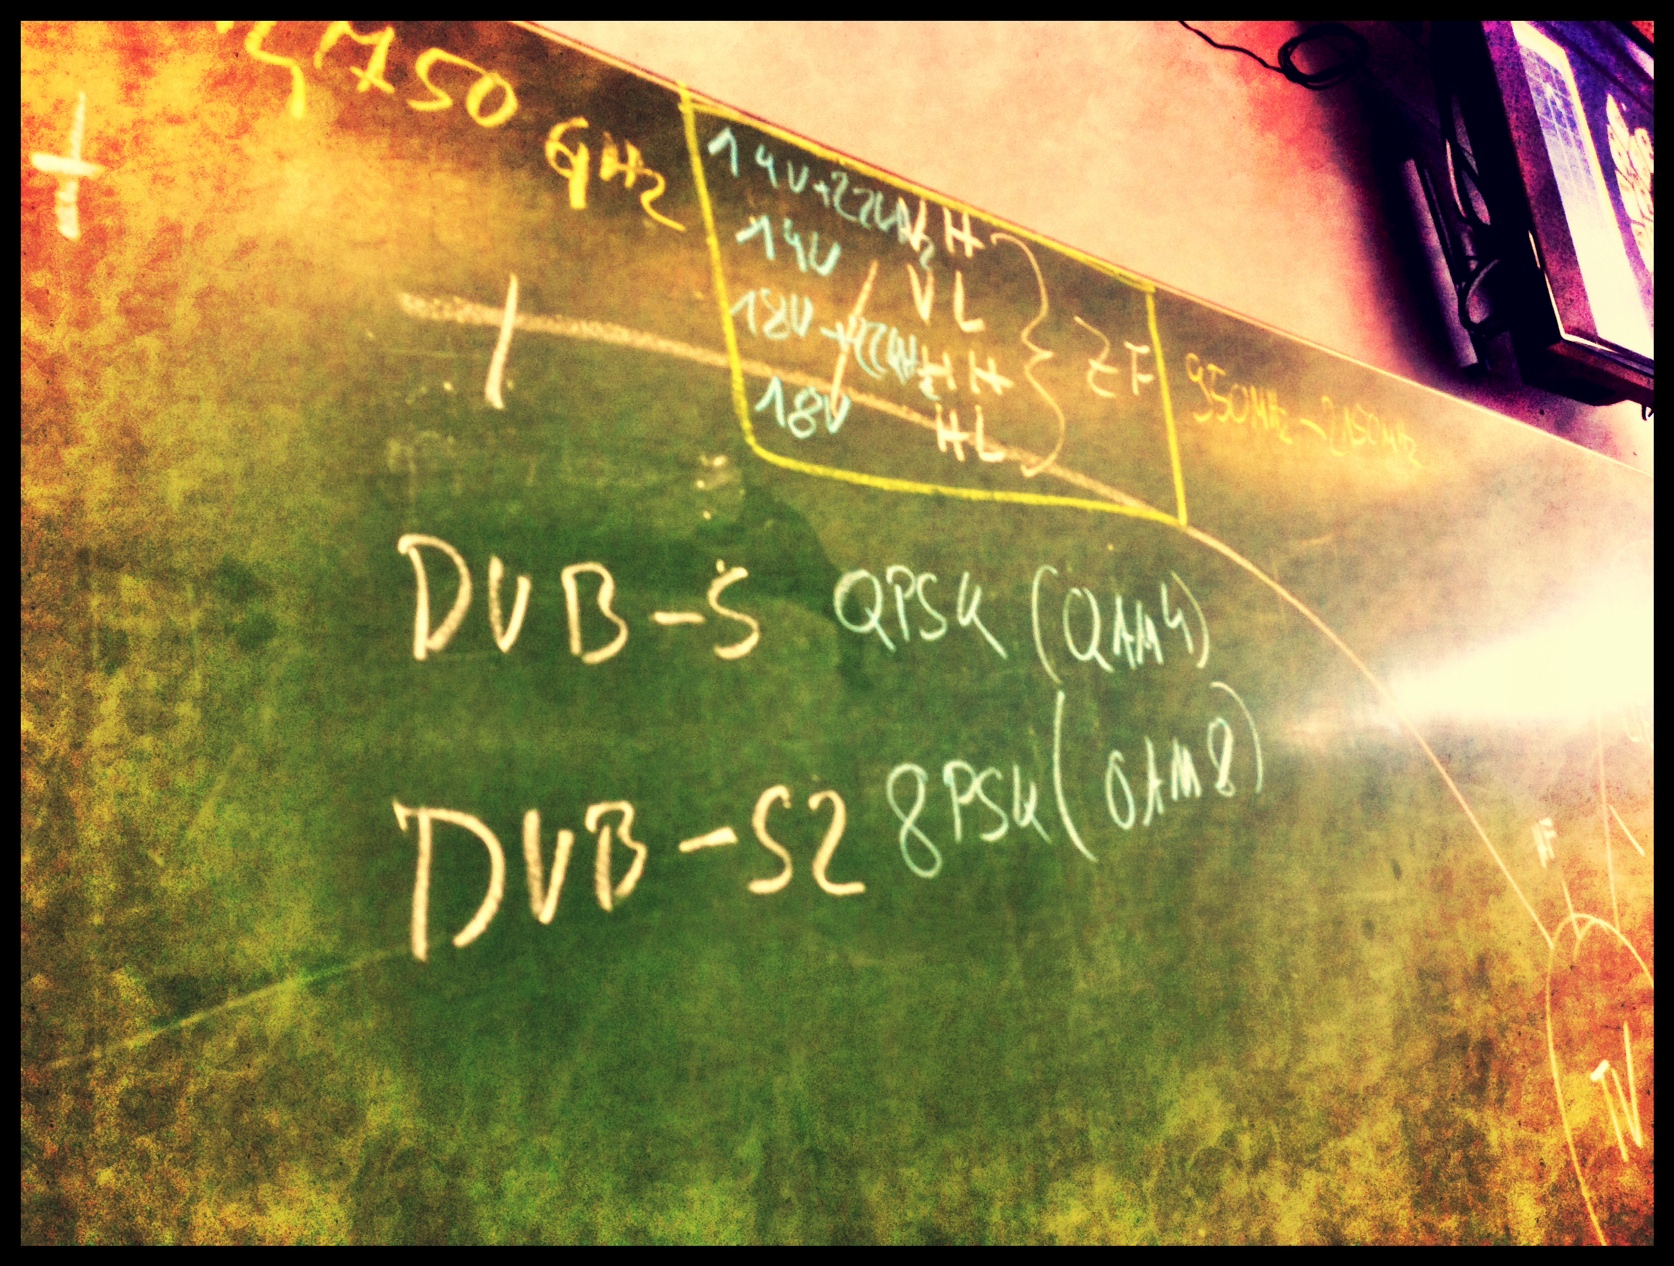 750 GHz
14V+22kHz VH
14V VL
18V+22kHz HH
18V HL
ZF
950MHz-2150MHz
DVB-S QPSK (QAM4)
DVB-S2 8PSK (QAM8)
TV